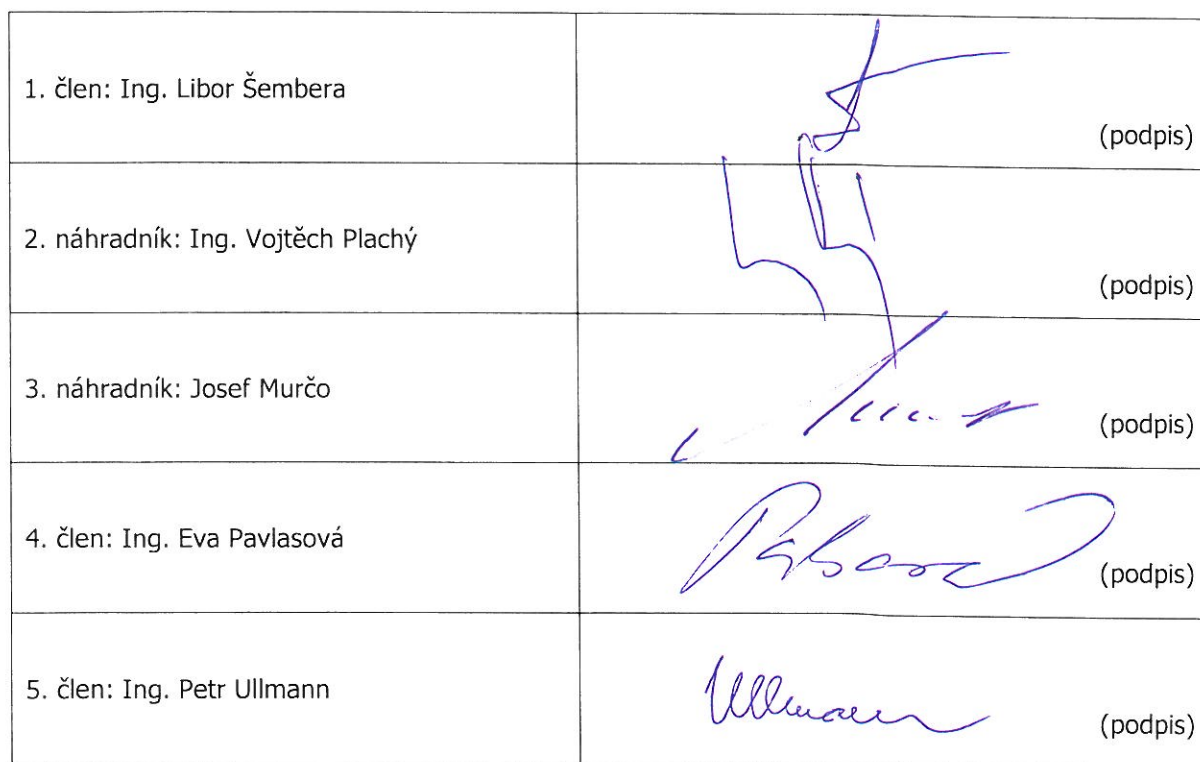 1. člen: Ing. Libor Šembera
(podpis)
2. náhradník: Ing. Vojtěch Plachý
(podpis)
3. náhradník: Josef Murčo
(podpis)
4. člen: Ing. Eva Pavlasová
(podpis)
5. člen: Ing. Petr Ullmann
Ullmann
(podpis)